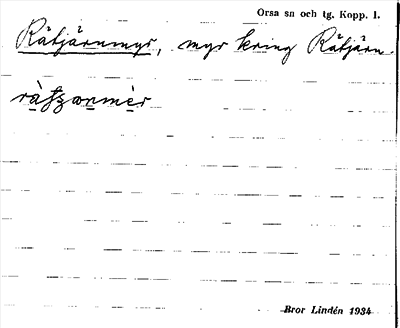 Orsa sn och tg, Kopp. l.
Råtjärnmyr, myr kring Råtjärn.
Bror Lindén 1934